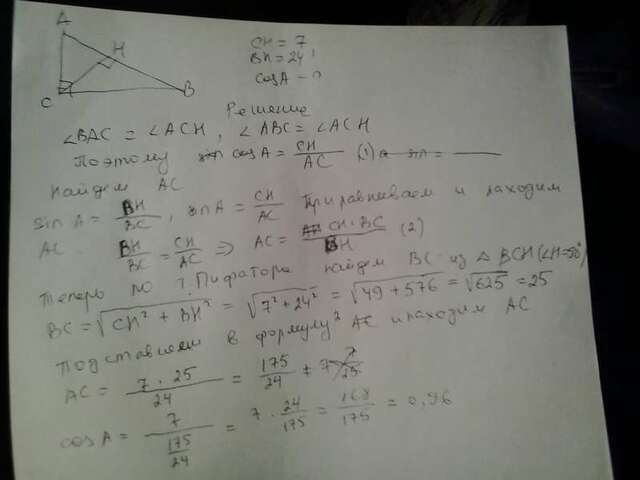 A
C
H
B
CH = 7
BH = 24,
cosA - ?
Решение
∠BAC = ∠ACH, ∠ABC = ∠ACH
Поэтому cosA = CH/AC (1) а
найдем AC
sin A = BH/BC, sin A = CH/AC Приравниваем и находим
AC. BH/BC = CH/AC ⇒ AC = CH·BC/BH (2)
Теперь по т Пифагора найдем BC из △ BCH (∠H=90°)
BC = √CH² + BH² = √7² + 24² = √49 + 576 = √625 = 25
Подставляем в формулу 2 и находим AC
AC = 7 · 25/24 = 175/24
cos A = 7/(175/24) = 7 · 24/175 = 168/175 = 0,96